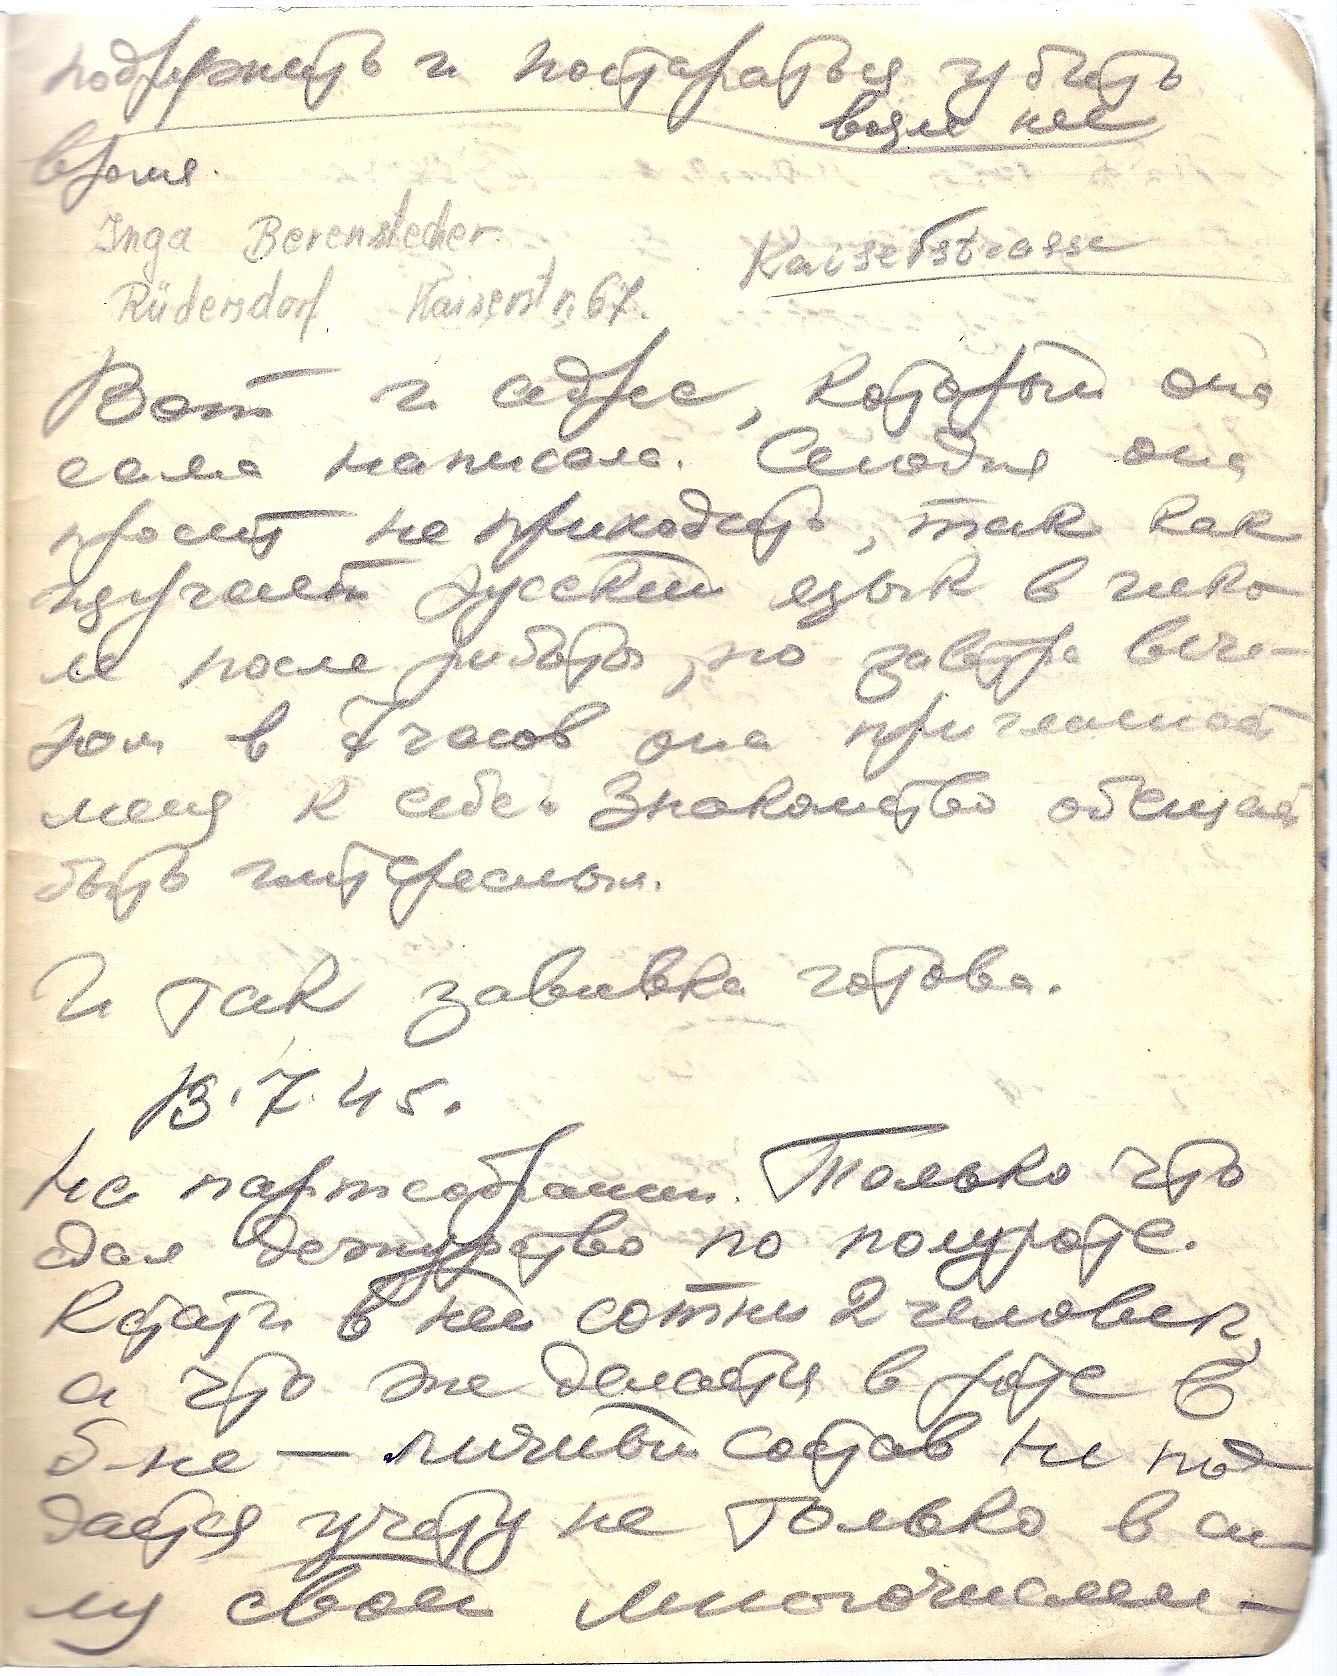 подружить и постараться убить
возле нее
время.
Inga Berenstecher
Kaiserstrasse
Rüdersdorf Kaiserstr. 67.
Вот и адрес, который она
сама написала. Сегодня она
просит не приходить, так как
изучает русский язык в шко-
ле после работы, но завтра вече-
ром в 7 часов она приглашает
меня к себе. Знакомство обещает
быть интересным.
И так завивка готова.
13.7.45.
На партсобрании. Только что
сдал дежурство по полуроте.
Кстати в ней сотни 2 человек,
а что же делается в роте в
б-не — личный состав не под
дается учету не только в си
лу своей многочислен-